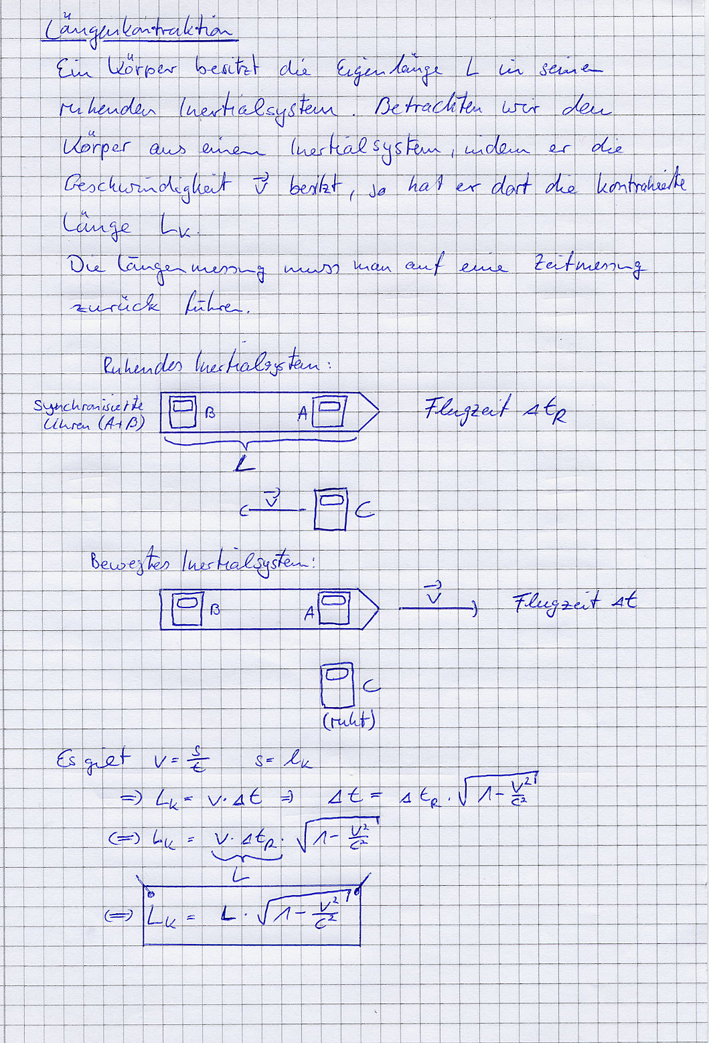 Längenkontraktion
Ein Körper besitzt die Eigenlänge L in seinem
ruhenden Inertialsystem. Betrachten wir den
Körper aus einem Inertialsystem, indem er die
Geschwindigkeit v⃗ besitzt, so hat er dort die kontrahierte
Länge L_K.
Die Längenmessung muss man auf eine Zeitmessung
zurück führen.
Ruhendes Inertialsystem:
Synchronisierte
Uhren (A+B)
B
A
Flugzeit Δt_R
L
v⃗
C
Bewegtes Inertialsystem:
B
A
v⃗
Flugzeit Δt
C
(ruht)
Es gilt v = s/t s = l_K
⇒ L_K = v · Δt ⇒ Δt = Δt_R · √(1 - v²/c²)
(=) L_K = v · Δt_R · √(1 - v²/c²)
L
(=) L_K = L · √(1 - v²/c²)